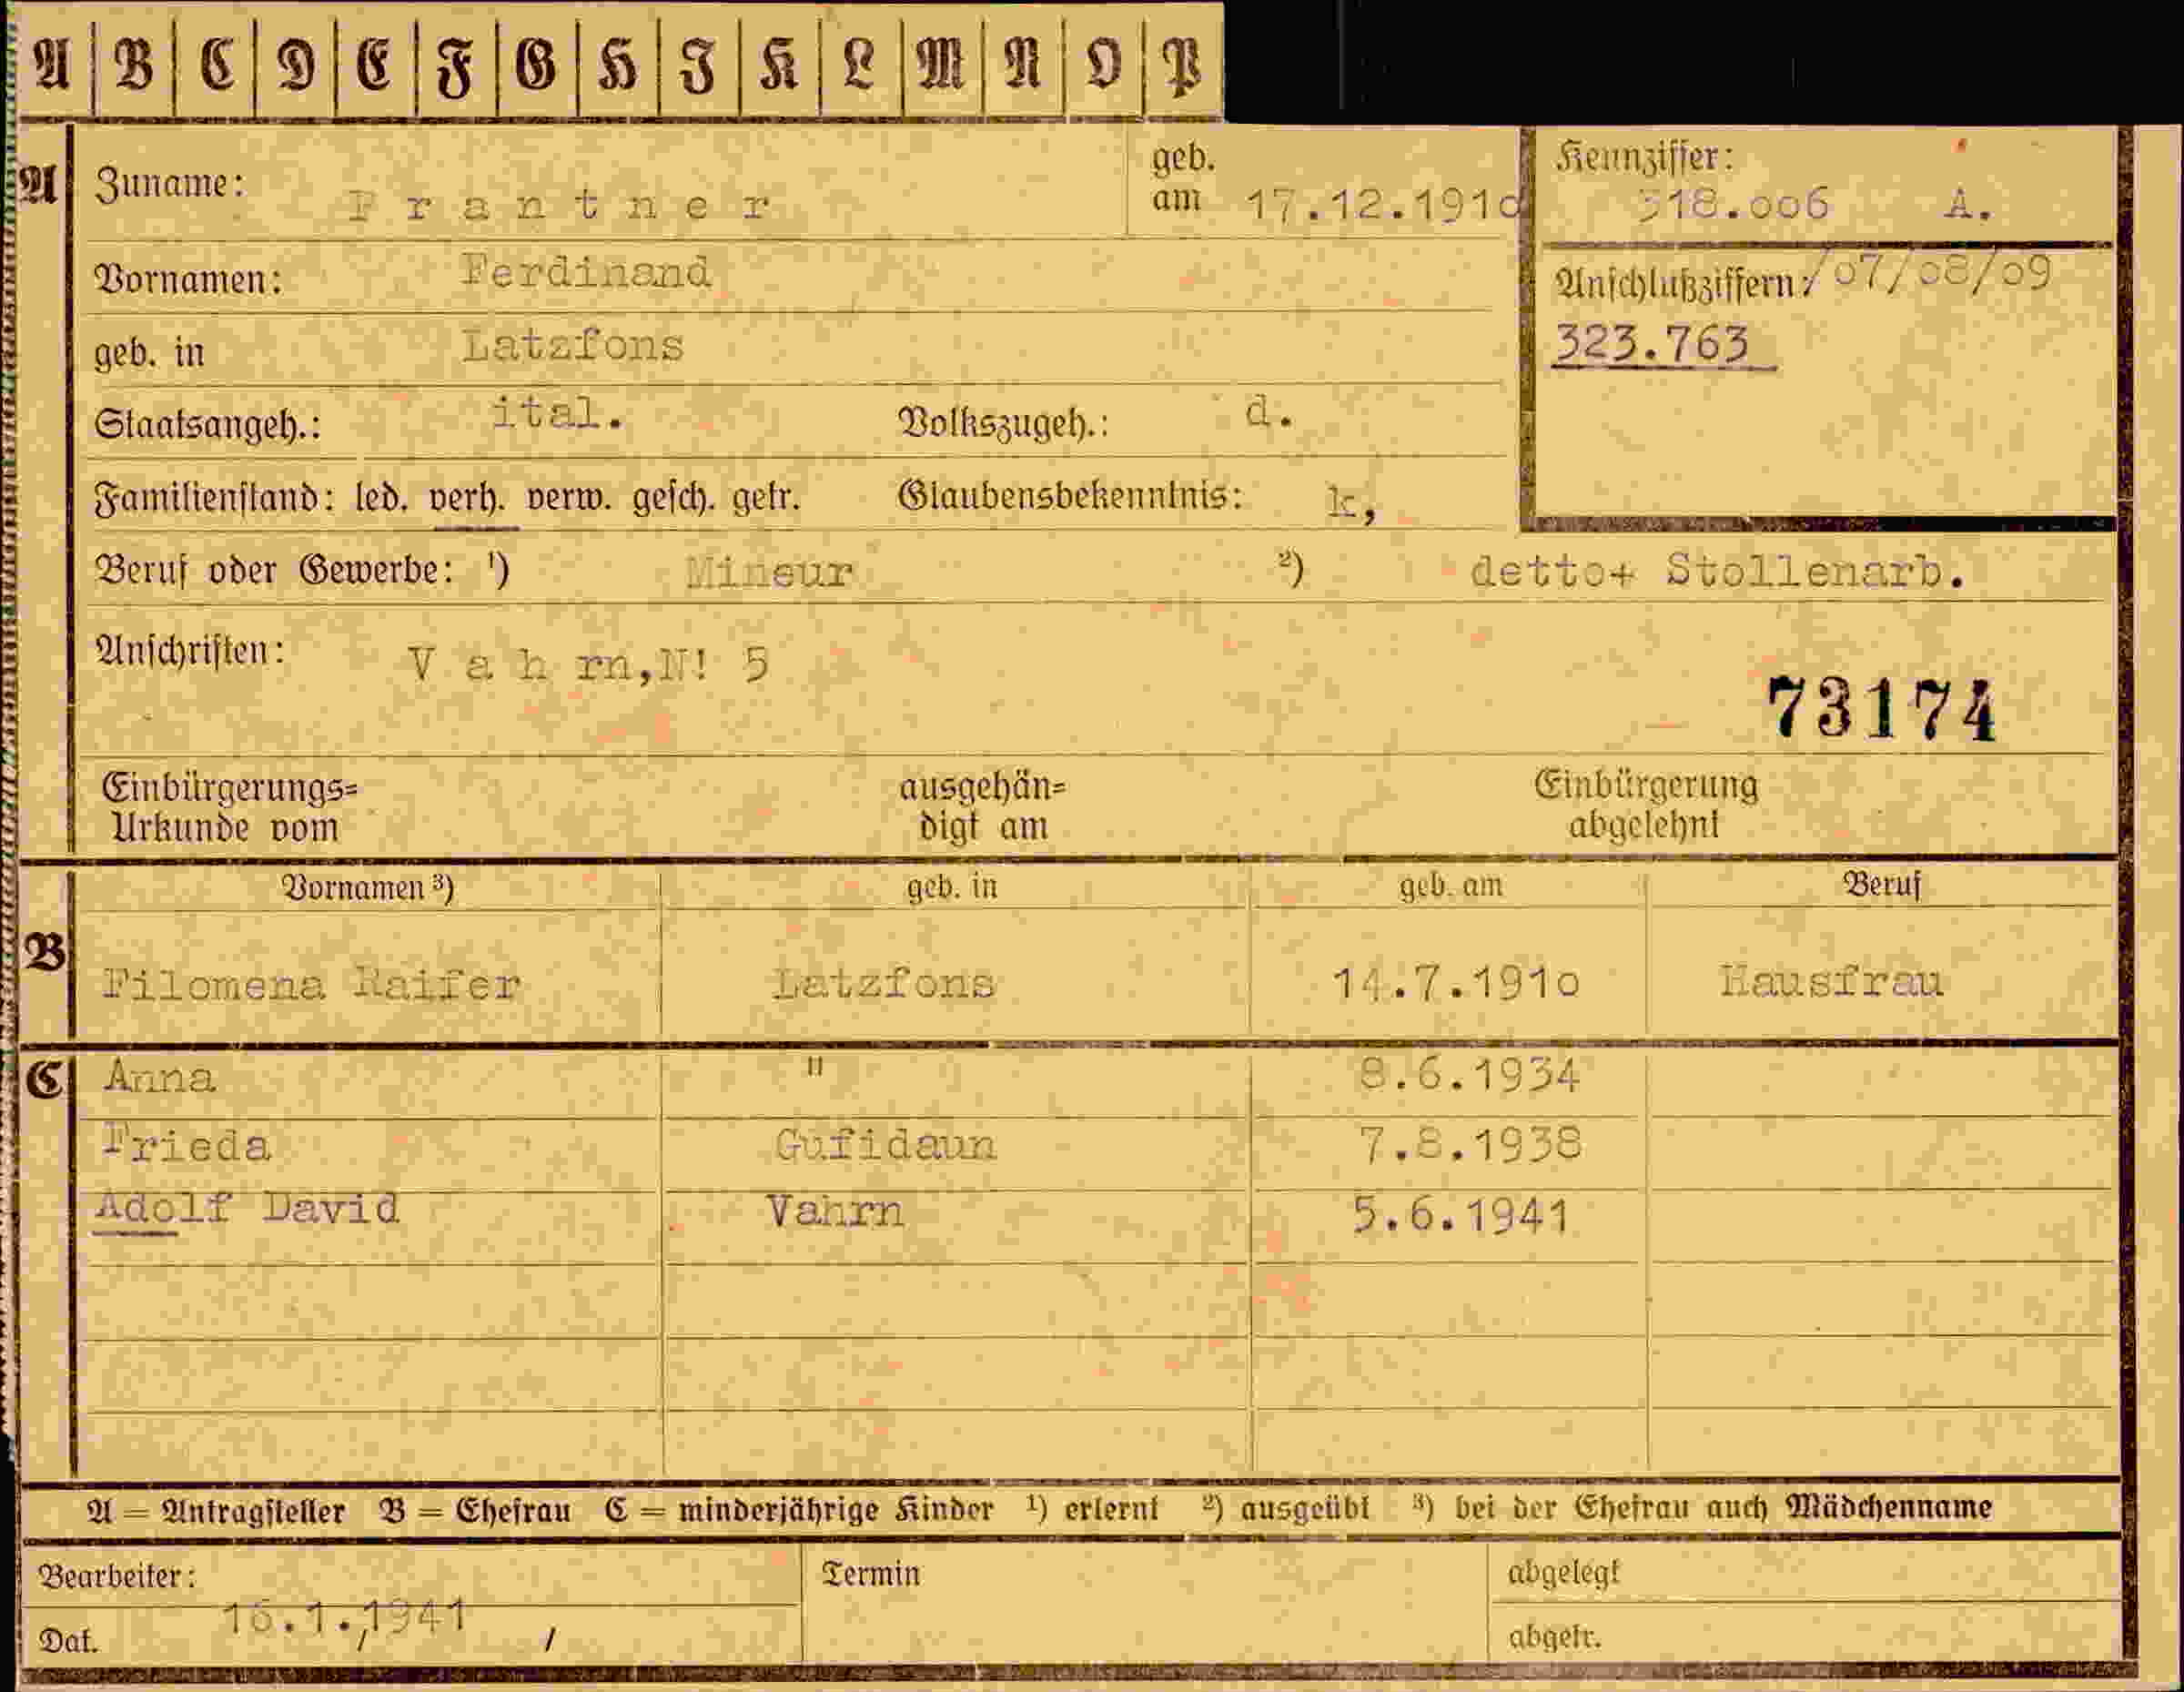 A B C D E F G H I K L M N O P
A Zuname: Frantner geb. am 17.12.1910 Kennziffer: 318.006 A.
Vornamen: Ferdinand Anschlußziffern:/07/08/09
geb. in Latzfons 323.763
Staatsangeh.: ital. Volkszugeh.: d.
Familienstand: led. verh. verw. gesch. getr. Glaubensbekenntnis: k,
Beruf oder Gewerbe: ¹) Mineur ²) detto+ Stollenarb.
Anschriften: V a h rn,N! 5
73174
Einbürgerungs= ausgehän= Einbürgerung
Urkunde vom digt am abgelehnt
Vornamen ³) geb. in geb. am Beruf
B Filomena Raifer Latzfons 14.7.1910 Hausfrau
C Anna " 8.6.1934
Frieda Gufidaun 7.8.1938
Adolf David Vahrn 5.6.1941
A = Antragsteller B = Ehefrau C = minderjährige Kinder ¹) erlernt ²) ausgeübt ³) bei der Ehefrau auch Mädchenname
Bearbeiter: Termin abgelegt
Dat. 16.1.,1941 / abgetr.